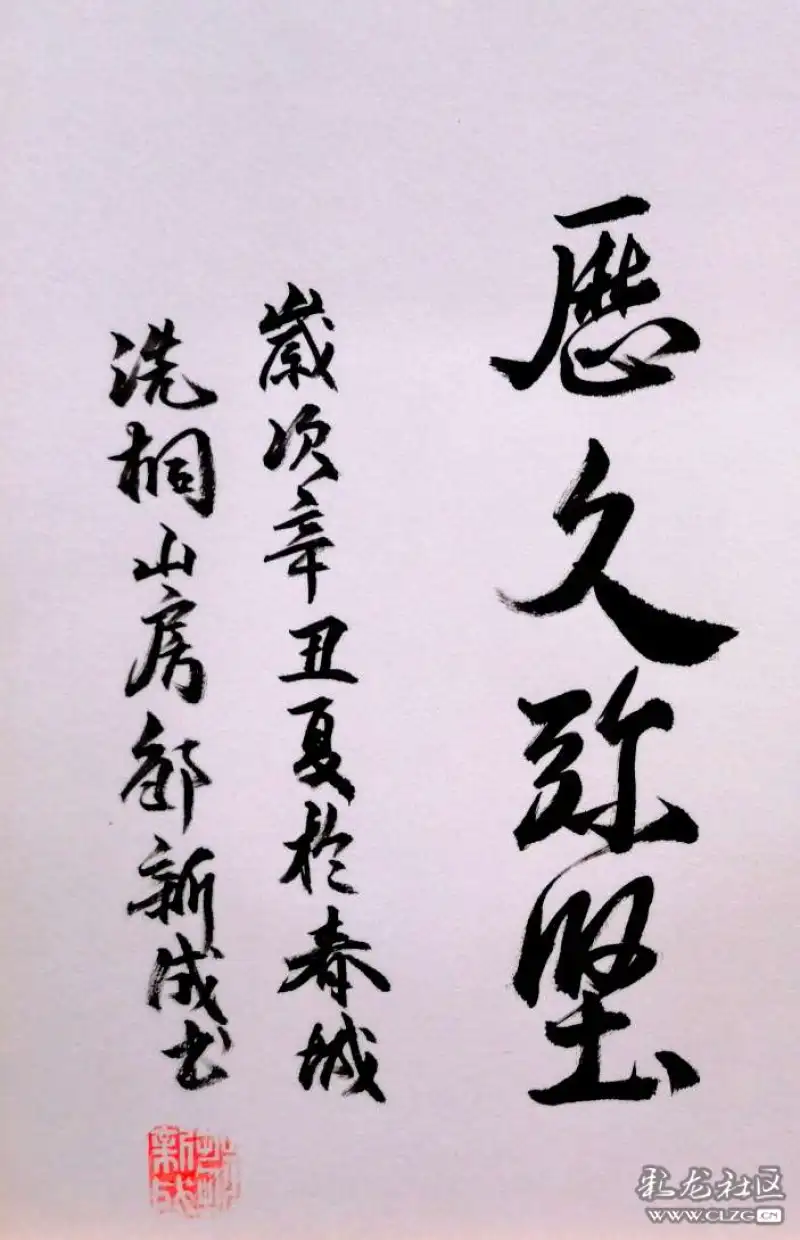 歷久弥坚
歲次辛丑夏於春城
洗桐山房邹新成书
新成
彩龙社区
WWW.CLZG.CN